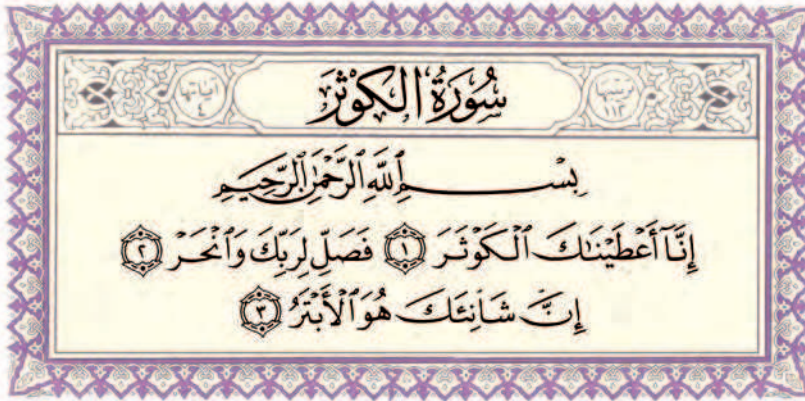 ترتيبها
١١٢
سُورَةُ الكَوْثَرَ
آياتها
٤
بِسْمِ ٱللَّهِ ٱلرَّحْمَٰنِ ٱلرَّحِيمِ
إِنَّآ أَعْطَيْنَٰكَ ٱلْكَوْثَرَ ١ فَصَلِّ لِرَبِّكَ وَٱنْحَرْ ٢
إِنَّ شَانِئَكَ هُوَ ٱلْأَبْتَرُ ٣